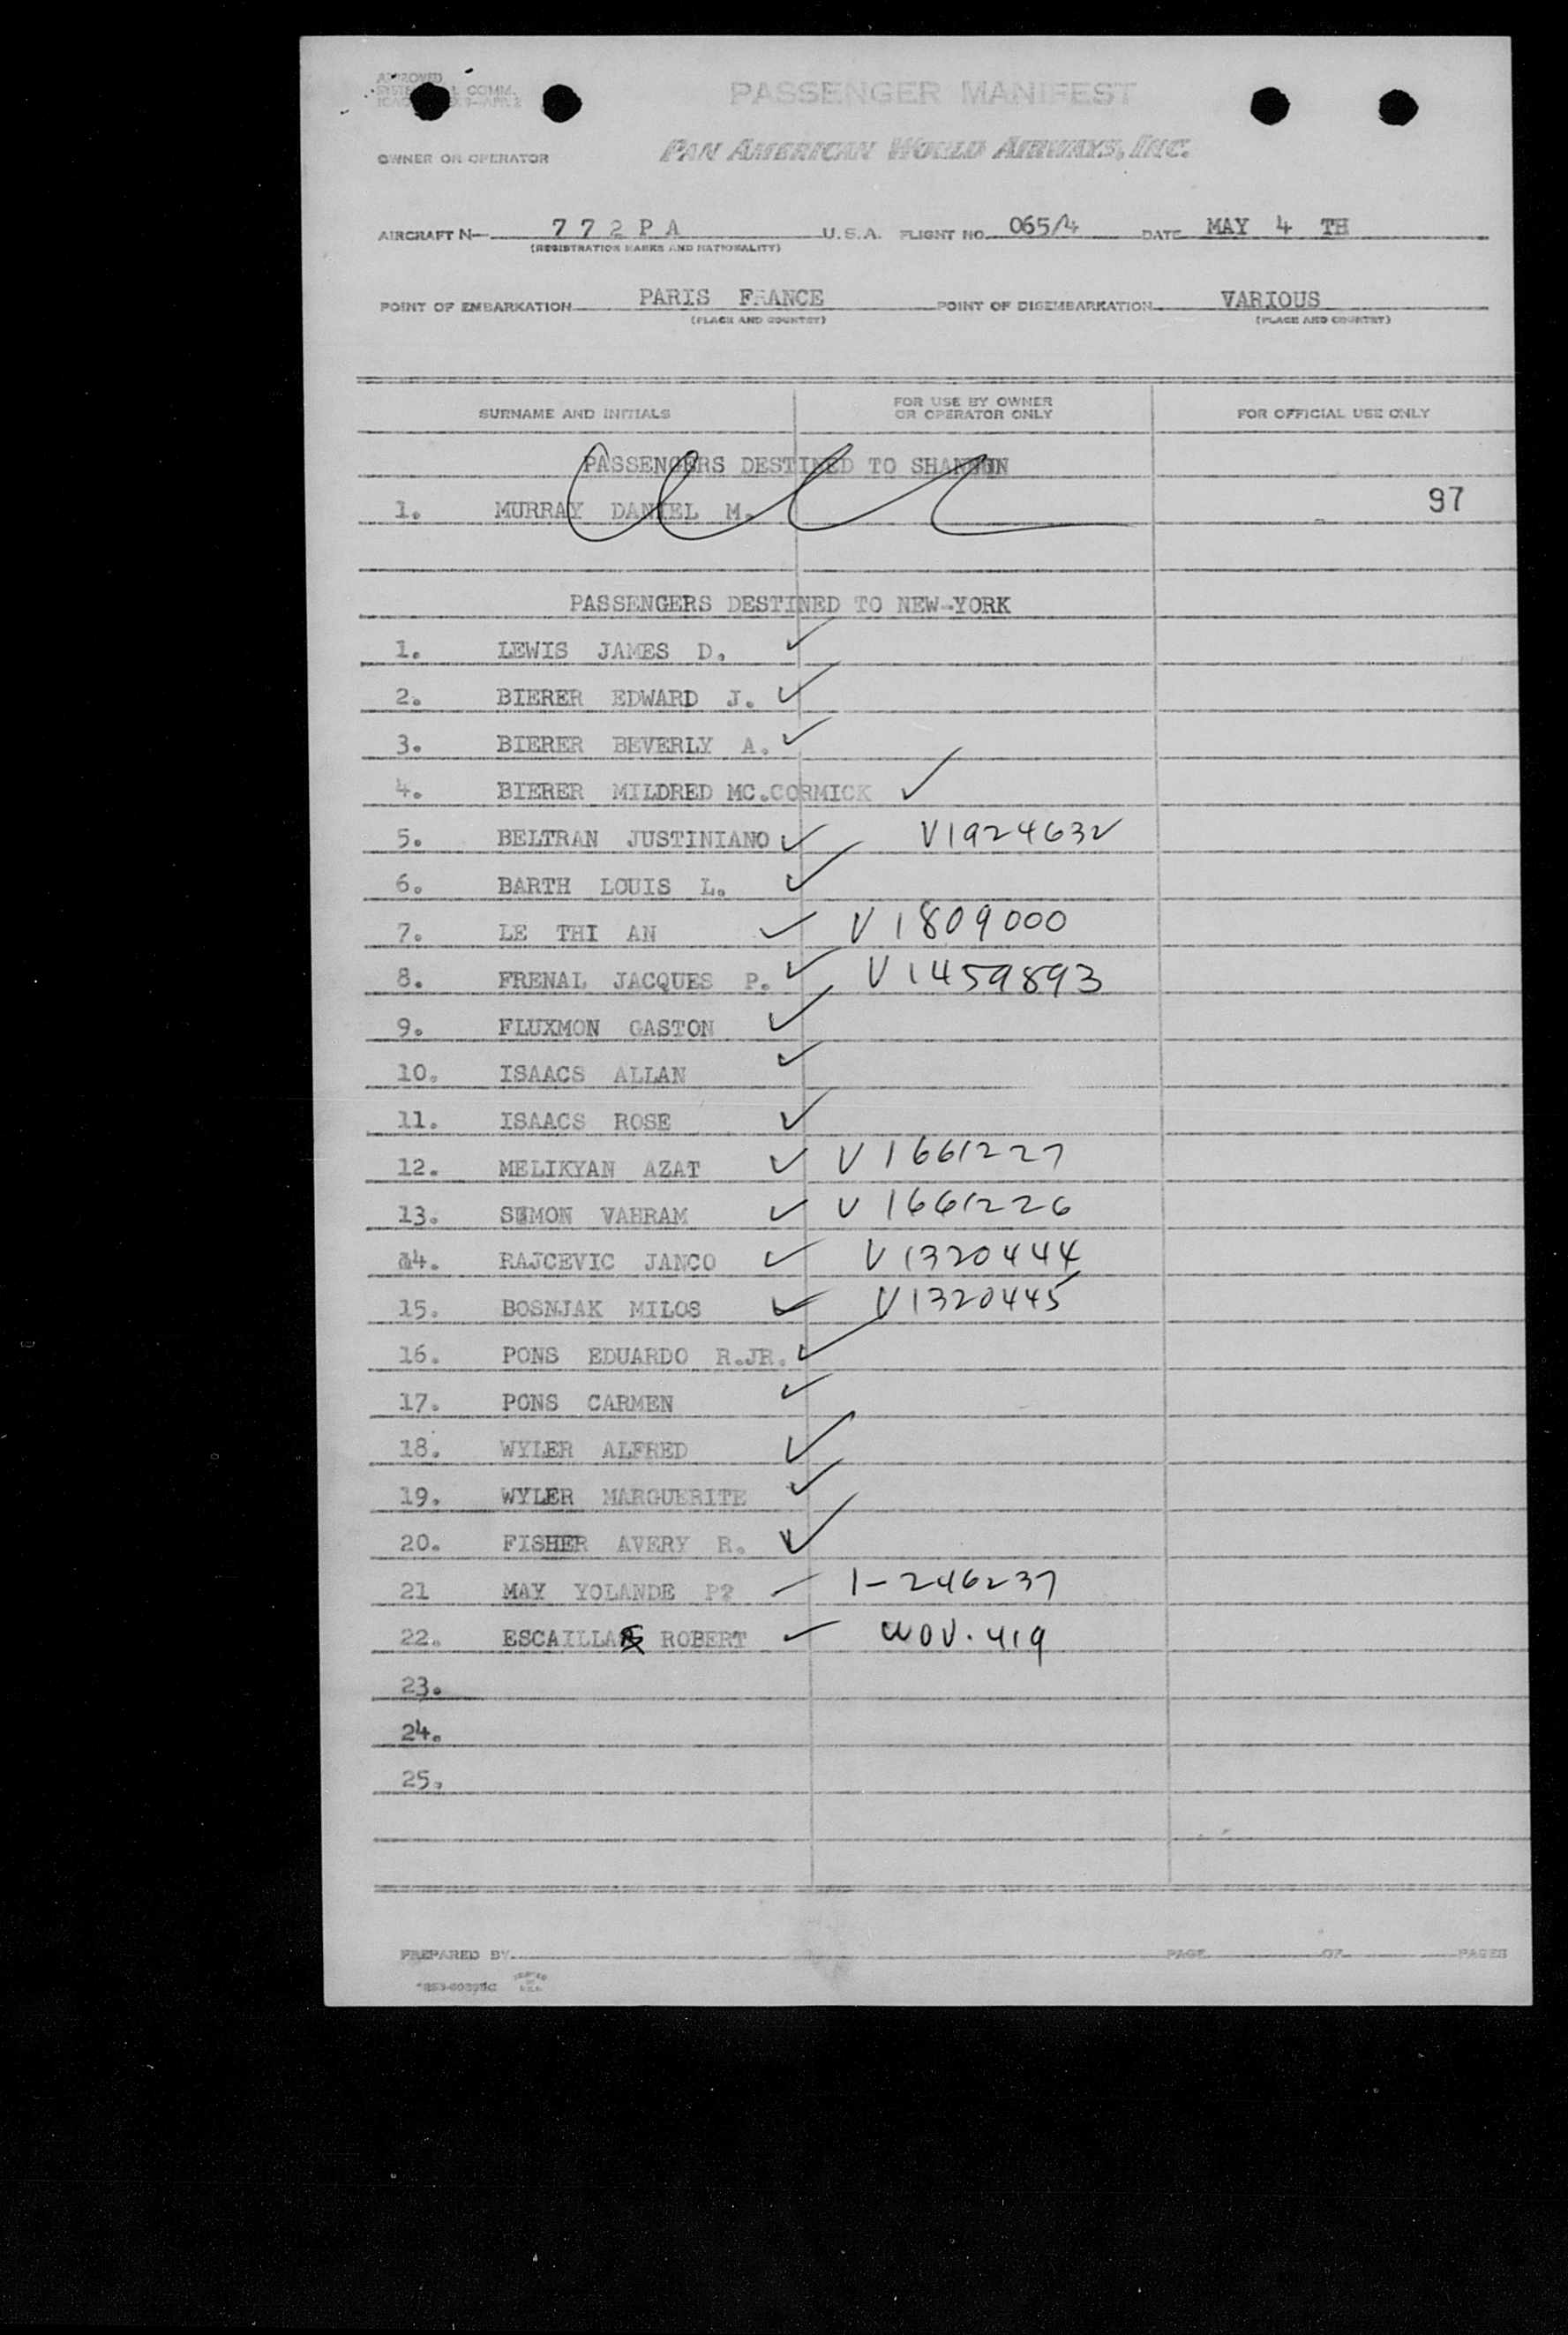 APPROVED
COMM.
PASSENGER MANIFEST
OWNER OR OPERATOR PAN AMERICAN WORLD AIRWAYS, INC.
AIRCRAFT N- 7 7 2 P A U.S.A. FLIGHT NO. 065/4 DATE MAY 4 TH
(REGISTRATION MARKS AND NATIONALITY)
POINT OF EMBARKATION PARIS FRANCE POINT OF DISEMBARKATION VARIOUS
(PLACE AND COUNTRY) (PLACE AND COUNTRY)
SURNAME AND INITIALS FOR USE BY OWNER OR OPERATOR ONLY FOR OFFICIAL USE ONLY
PASSENGERS DESTINED TO SHANNON
1. MURRAY DANIEL M. 97
PASSENGERS DESTINED TO NEW-YORK
1. LEWIS JAMES D. ✓
2. BIERER EDWARD J. ✓
3. BIERER BEVERLY A. ✓
4. BIERER MILDRED MC.CORMICK ✓
5. BELTRAN JUSTINIANO ✓ V1924632
6. BARTH LOUIS L. ✓
7. LE THI AN ✓ V1809000
8. FRENAL JACQUES P. ✓ V1459893
9. FLUXMON GASTON ✓
10. ISAACS ALLAN ✓
11. ISAACS ROSE ✓
12. MELIKYAN AZAT ✓ V1661227
13. SEMON VAHRAM ✓ V1661226
14. RAJCEVIC JANCO ✓ V1320444
15. BOSNJAK MILOS ✓ V1320445
16. PONS EDUARDO R.JR. ✓
17. PONS CARMEN ✓
18. WYLER ALFRED ✓
19. WYLER MARGUERITE ✓
20. FISHER AVERY R. ✓
21 MAY YOLANDE P? ✓ 1-246237
22. ESCAILLAS ROBERT ✓ WOV.419
23.
24.
25.
PREPARED BY PAGE OF PAGES